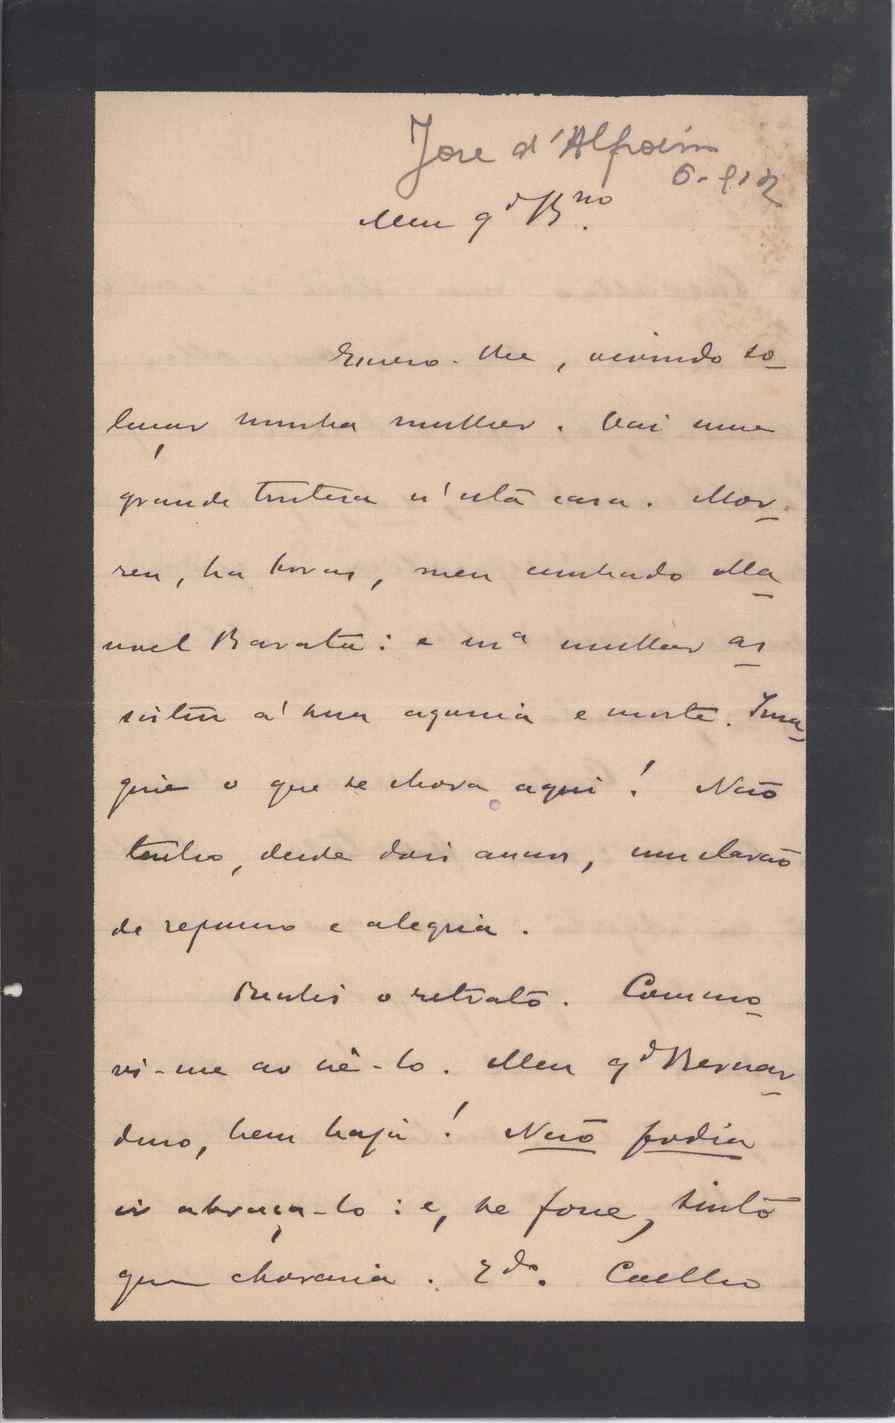 José d'Alpoim
6-9-12
Meu q.do B.no
Escrevo-lhe, ouvindo so-
luçar minha mulher. Vai uma
grande tristeza n'esta casa. Mor-
reu, ha horas, meu cunhado Ma-
nuel Barata: e m.a mulher as-
sistiu á sua agonia e morte. Ima-
gine o que se chora aqui! Não
tenho, desde dois annos, um clarão
de repouso e alegria.
Recebi o retrato. Commo-
vi-me ao vê-lo. Meu q.do Bernar-
dino, bem haja! Não podia
ir abraça-lo: e, se fosse, sinto
que choraria. Q.do Coelho